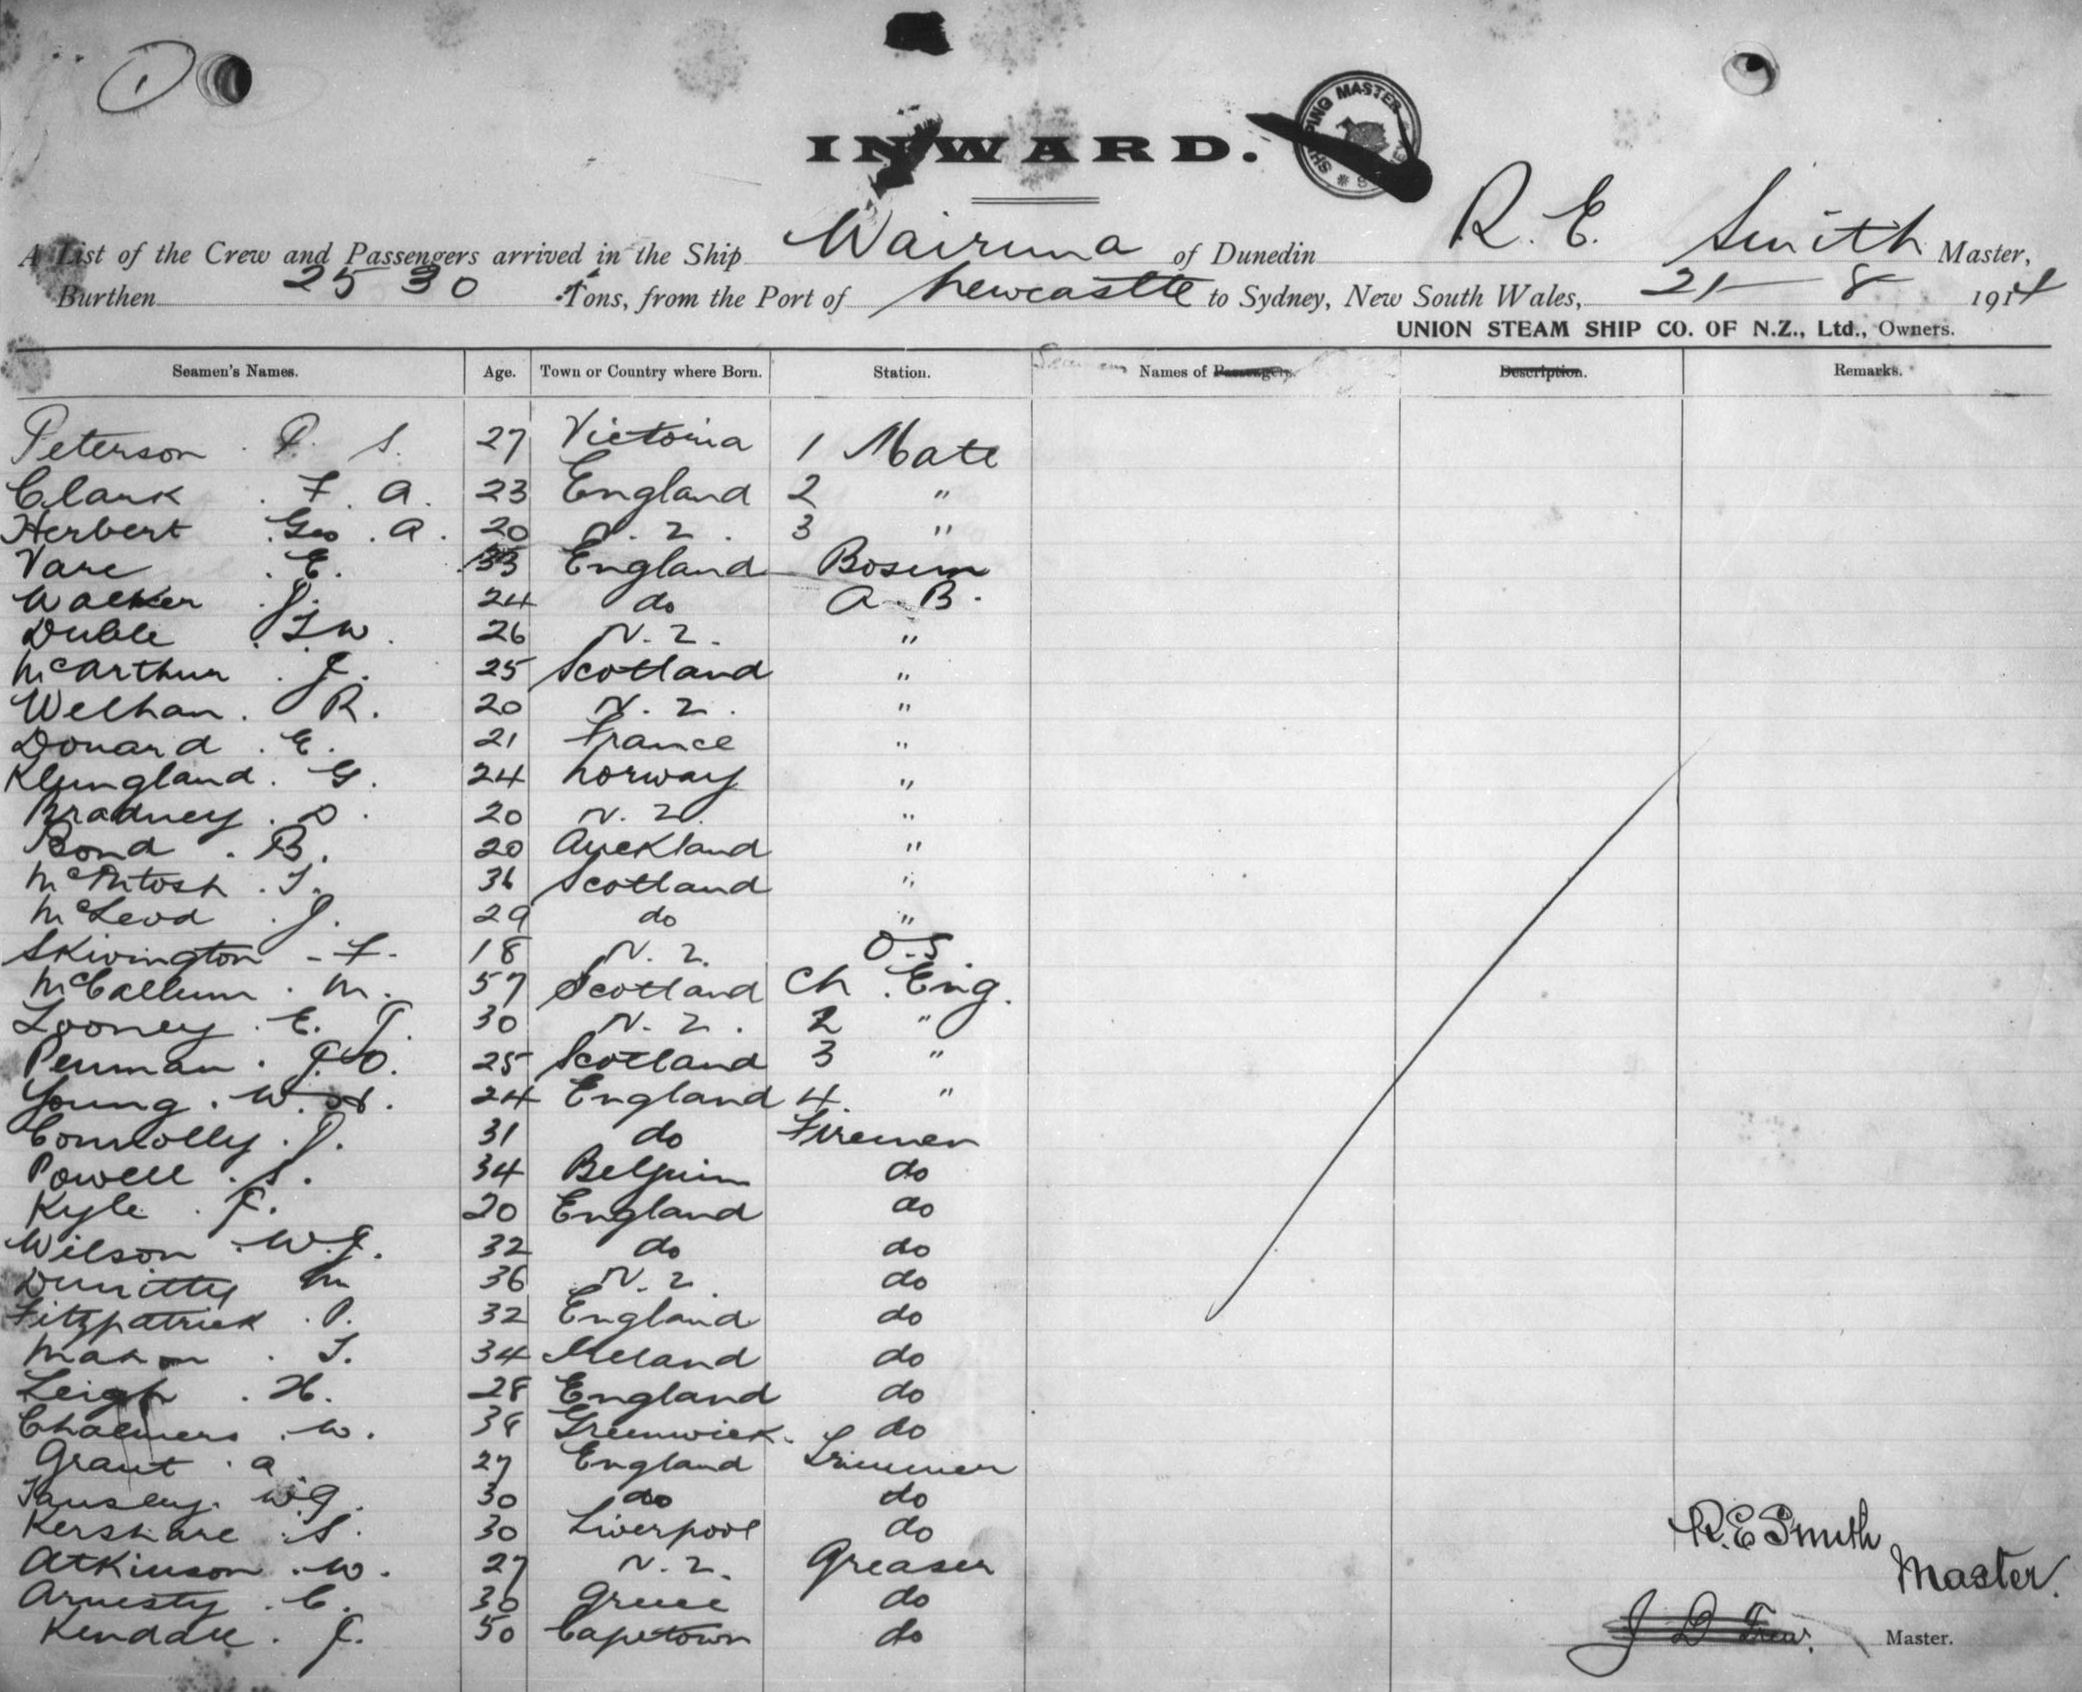 1
INWARD.
SHIPPING MASTER
A List of the Crew and Passengers arrived in the Ship Wairuna of Dunedin R. E. Smith Master,
Burthen 2530 Tons, from the Port of Newcastle to Sydney, New South Wales, 21 - 8 1914
UNION STEAM SHIP CO. OF N.Z., Ltd., Owners.
Seamen's Names. Age. Town or Country where Born. Station. Names of Passengers. Description. Remarks.
Peterson P. S. 27 Victoria 1 Mate
Clark F. A. 23 England 2 "
Herbert Geo. A. 20 N. Z. 3 "
Vare E. 33 England Bosun
Walker J. 24 do A. B.
Duble W. 26 N. Z. "
McArthur J. 25 Scotland "
Welhan R. 20 N. Z. "
Douard E. 21 France "
Klungland G. 24 Norway "
Bradney D. 20 N. Z. "
Bond B. 20 Auckland "
McIntosh T. 36 Scotland "
McLeod J. 29 do "
Skivington F. 18 N. Z. O.S.
McCallum M. 57 Scotland Ch. Eng.
Looney E. T. 30 N. Z. 2 "
Penman J. 25 Scotland 3 "
Young W. H. 24 England 4 "
Connolly J. 31 do Firemen
Powell S. 34 Belgium do
Kyle J. 20 England do
Wilson W. J. 32 do do
M 36 N. Z. do
Fitzpatrick P. 32 England do
Mahon T. 34 Ireland do
Leigh H. 28 England do
Chalmers W. 38 Greenwick. do
Grant A 27 England Trimmer
Tansley. W G. 30 do do
Kershare S. 30 Liverpool do
Atkinson W. 27 N. Z. Greaser
Arnesty C. 30 Greece do
Kendall J. 50 Capetown do
R. E Smith
Master.
J D Master.